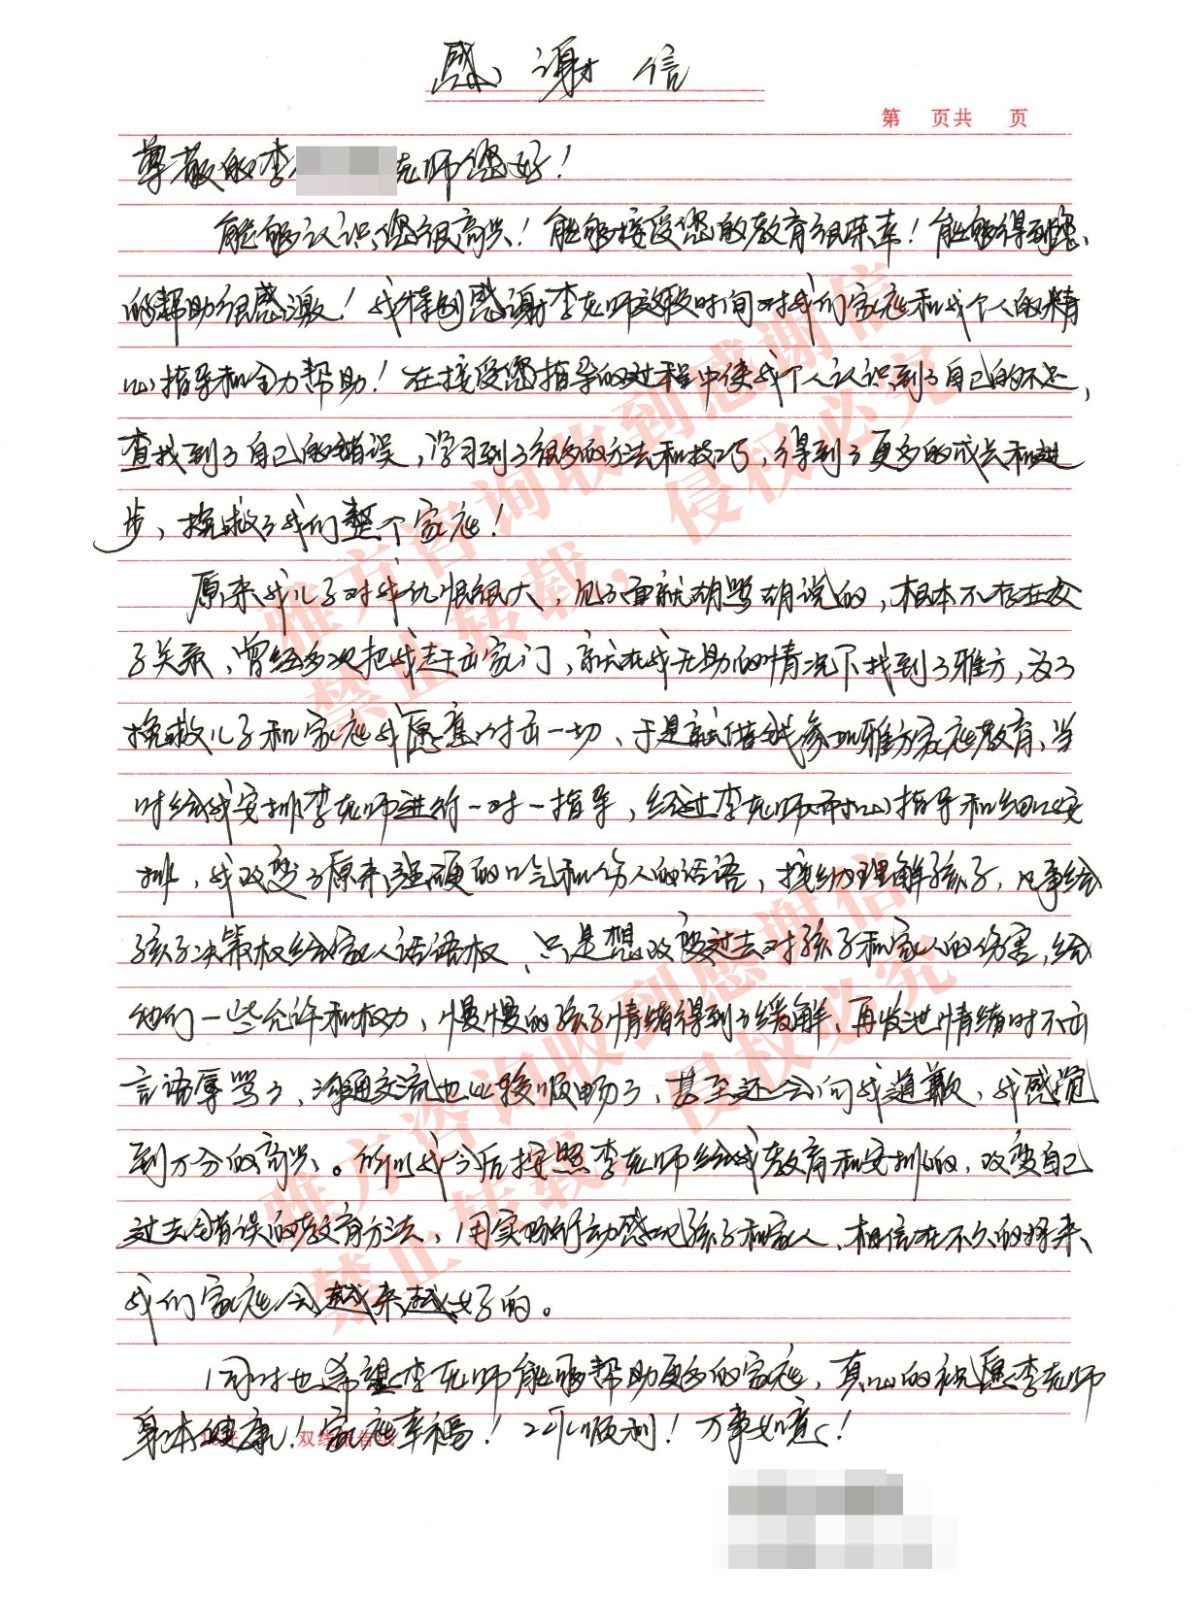 感谢信
第 页共 页
尊敬的李 老师您好！
能够认识您很高兴！能够接受您的教育很荣幸！能够得到您
的帮助很感激！我特别感谢李老师这段时间对我们家庭和我个人的精
心指导和全力帮助！在接受您指导的过程中使我个人认识到了自己的不足，
查找到了自己的错误，学习到了很多的方法和技巧，得到了更多的成长和进
步，挽救了我们整个家庭！
原来我儿子对我仇恨很大，见了面就胡骂胡说的，根本不存在父
子关系，曾经多次把我赶出家门，就在我无助的情况下找到了雅方，为了
挽救儿子和家庭我愿意付出一切，于是就借钱参加雅方家庭教育，当
时给我安排李老师进行一对一指导，经过李老师耐心指导和细心安
排，我改变了原来强硬的口气和伤人的话语，接纳理解孩子，凡事给
孩子决策权给家人话语权，只是想改变过去对孩子和家人的伤害，给
他们一些允许和权力，慢慢的孩子情绪得到了缓解，再发泄情绪时不出
言语辱骂了，沟通交流也比较顺畅了，甚至还会向我道歉，我感觉
到万分的高兴。所以我今后按照李老师给我教育和安排的，改变自己
过去错误的教育方法，用实际行动感化孩子和家人，相信在不久的将来，
我们家庭会越来越好的。
同时也希望李老师能够帮助更多的家庭，真心的祝愿李老师
身体健康！家庭幸福！工作顺利！万事如意！
雅方咨询收到感谢信
禁止转载，侵权必究
雅方咨询收到感谢信
禁止转载，侵权必究